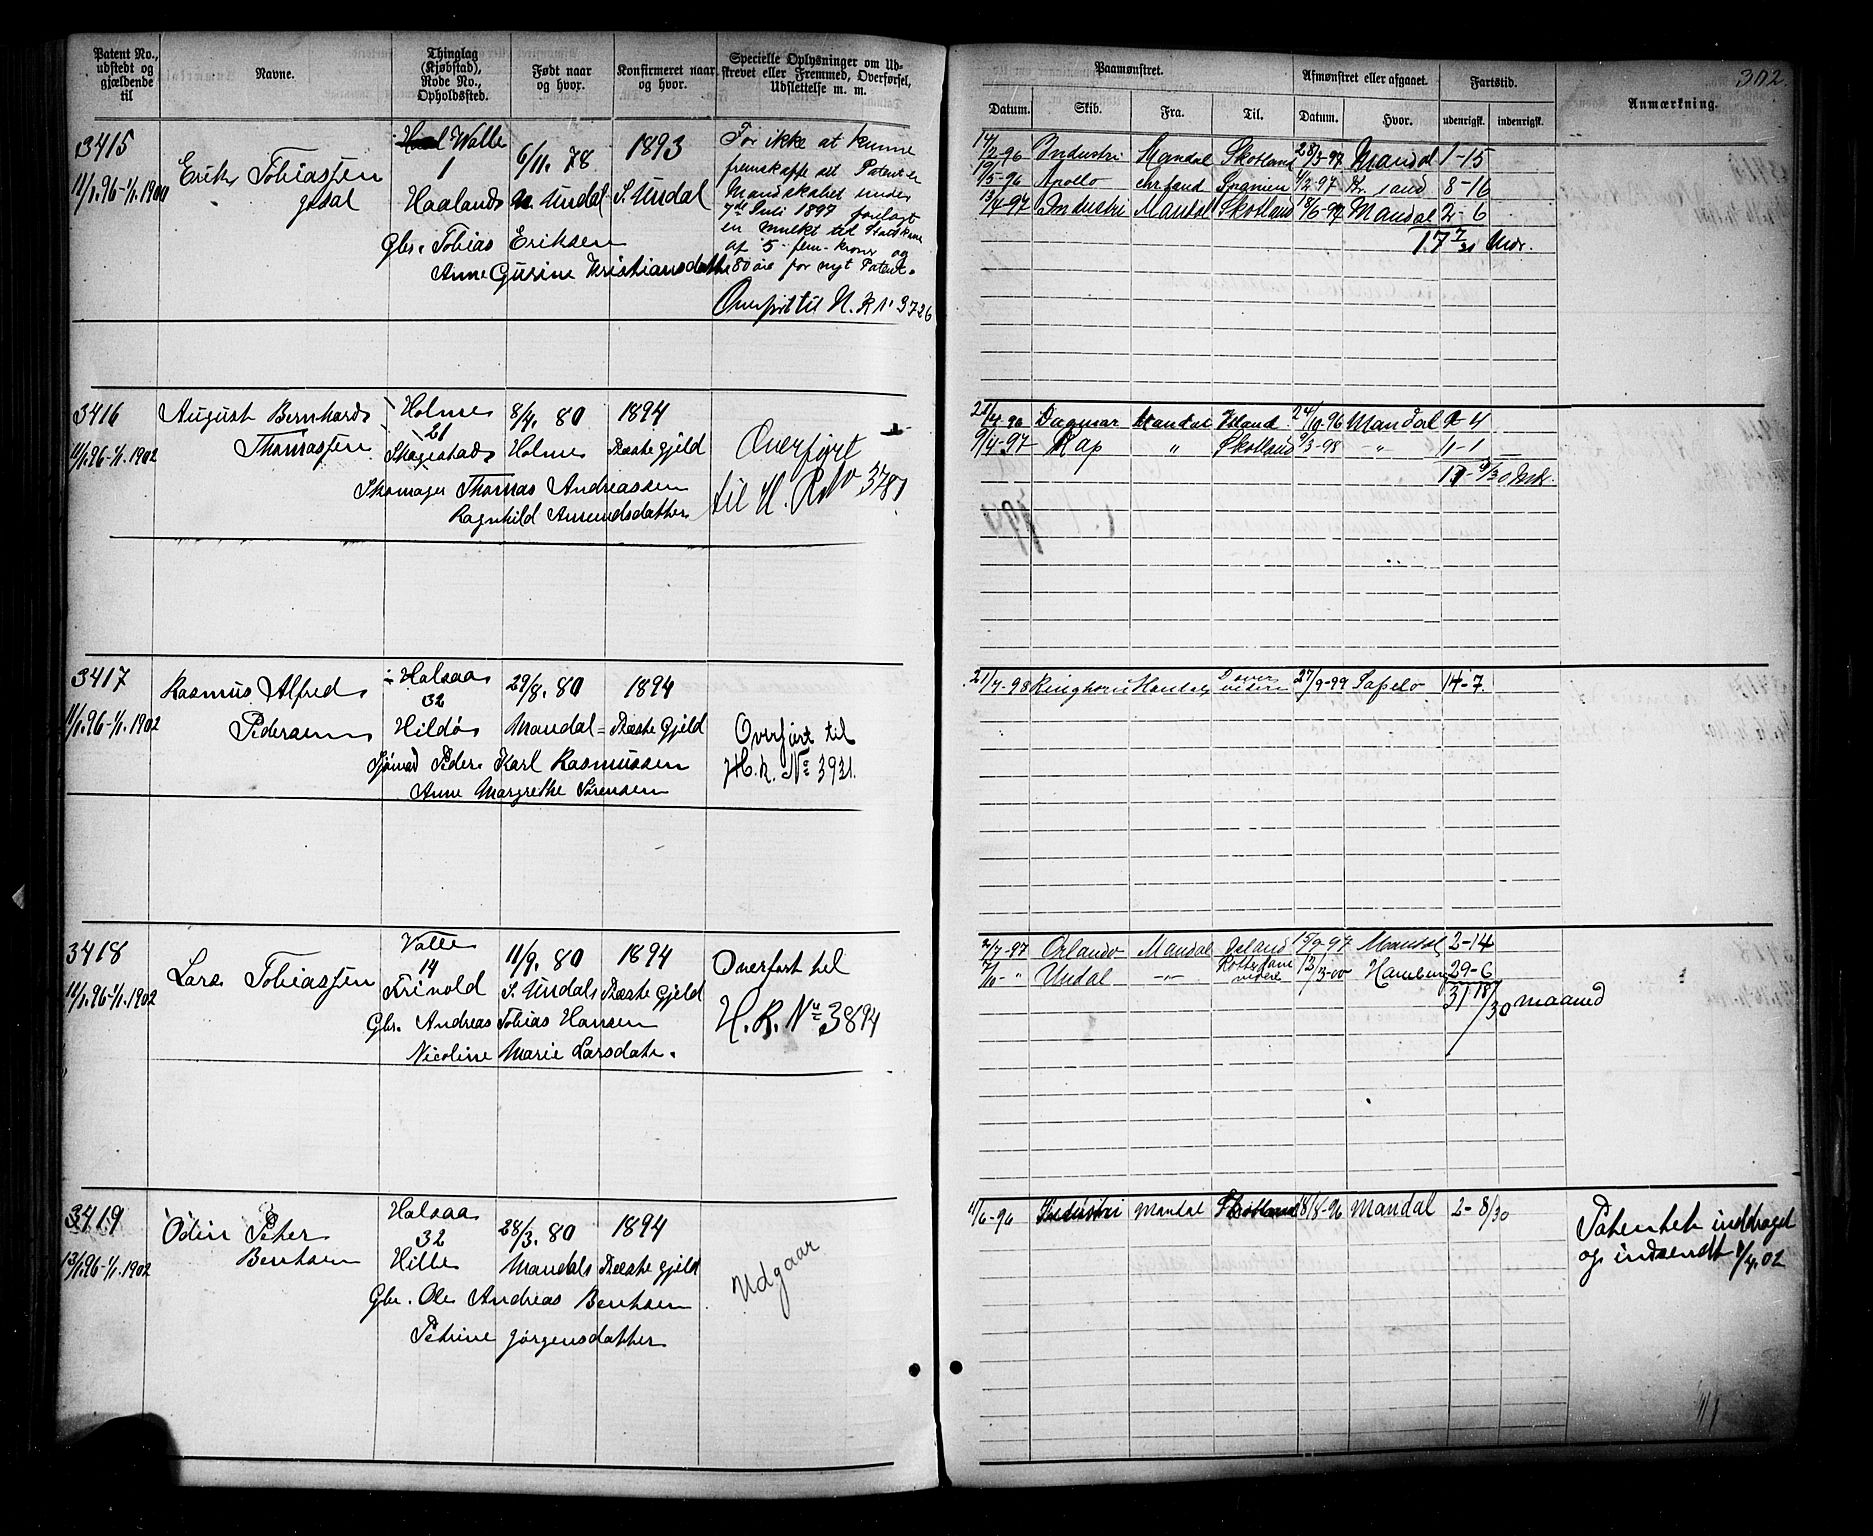 Patent No., udstedt og gjældende til
Navne.
Thinglag (Kjøbstad), Rode No., Opholdssted.
Født naar og hvor.
Konfirmeret naar og hvor.
Specielle Oplysninger om Udstrevet eller Fremmed, Overførsel, Udslettelse m. m.
Paamønstret.
Afmønstret eller afgaaet.
Fartstid.
Anmærkning.
302.
Datum.
Skib.
Fra.
Til.
Datum.
Hvor.
udenrigsk.
indenrigsk.
3415
11/1.96-1/1.1900
Erik Tobiassen
Walle
1
Haaland
6/11. 78
N. Undal
1893
S. Undal
Gbr. Tobias Eriksen
Anne Gurine Kristiansdatter
For ikke at kunne
fremskaffe det Patent er
Mandskabet under
7de Juli 1897 forelagt
en mulkt til Statskas
af 5 - fem - kroner og
80 øre for nyt Patent.
Overført til H. R. No 3726
14/2-96 Industri Mandal Skotland 28/3-97 Mandal 1-15
19/5-96 Apollo Spanien 4/2 97 Kr. sand 8-16
13/4-97 Industri Mandal Skotland 18/6-97 Mandal 2-6
3416
11/1.96-1/1.1902
August Bernhard
Thomassen
Holme
21
Skogestad
8/4. 80
Holme
1894
Næste Gjeld
Skomager Thomas Andreassen
Ragnhild Amundsdatter
Overført
til H. R. No 3781
Dagmar Mandal Island 24/10-96 Mandal
9/4-97 Kap " Skotland 9/3-98 -"- 11-1
3417
11/1.96-1/1.1902
Rasmus Alfred
Pedersen
Halsaa
32
Hildø
29/8. 80
Mandal
1894
Næste Gjeld
Sjømad Peder Karl Rasmussen
Anne Margrethe Sørensen
Overført til
H. R. No 3931.
21/7-98 Ringhorn Mandal Dover videre 27/9-99 Sapelo 14-7
3418
11/1.96-1/1.1902
Lars Tobiassen
Valle
14
Frivold
11/9. 80
S. Undal
1894
Næste Gjeld
Gbr. Andreas Tobias Hansen
Nicoline Marie Larsdatr.
Overført til
H. R. No 3894
2/7-97 Orlando Mandal Island 15/9-97 Mandal 2-14
7/10-" Undal -"- Rotterdam videre 12/3-00 Hamburg 29-6
31 18/30 maaned
3419
13/1.96-1/1.1902
Odin Peter
Bentsen
Halsaa
32
Hille
28/3. 80
Mandal
1894
Næste gjeld
Gbr. Ole Andreas Bentsen
Petrine Jørgensdatter
Udgaar
4/6-96 Industri Mandal Skotland 18/8-96 Mandal 2-8/30
Patentet inddraget
og indsendt 1/4.02